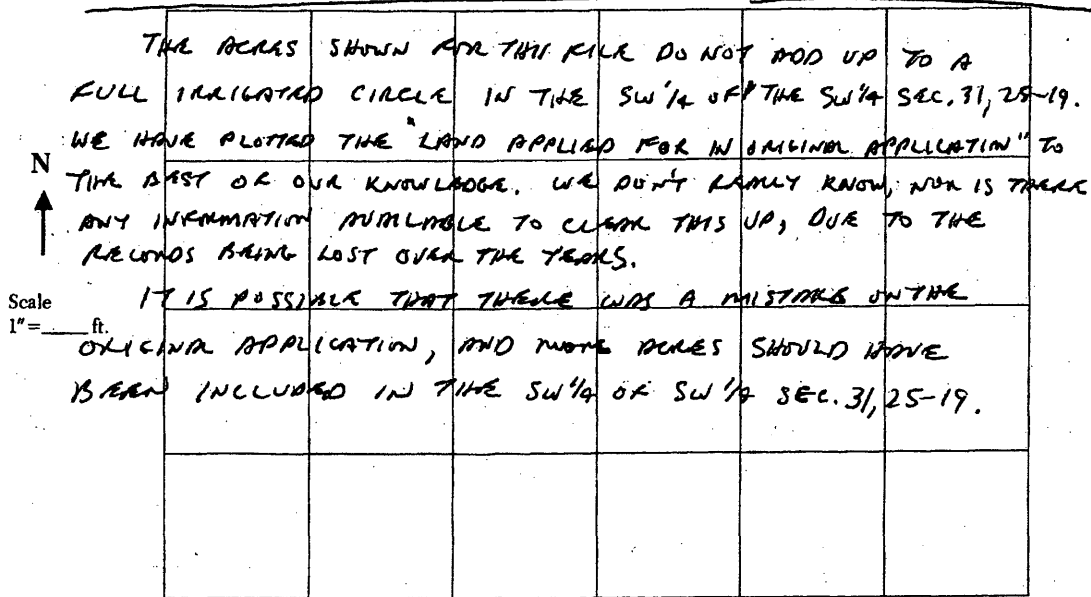 THE ACRES SHOWN FOR THIS FILE DO NOT ADD UP TO A
FULL IRRIGATED CIRCLE IN THE SW 1/4 OF THE SW 1/4 SEC. 31, 25-19.
WE HAVE PLOTTED THE "LAND APPLIED FOR IN ORIGINAL APPLICATION" TO
N
THE BEST OF OUR KNOWLEDGE. WE DON'T REALLY KNOW, NOR IS THERE
ANY INFORMATION AVAILABLE TO CLEAR THIS UP, DUE TO THE
RECORDS BEING LOST OVER THE YEARS.
IT IS POSSIBLE THAT THERE WAS A MISTAKE ON THE
Scale
1" = ____ ft.
ORIGINAL APPLICATION, AND MORE ACRES SHOULD HAVE
BEEN INCLUDED IN THE SW 1/4 OF SW 1/4 SEC. 31, 25-19.